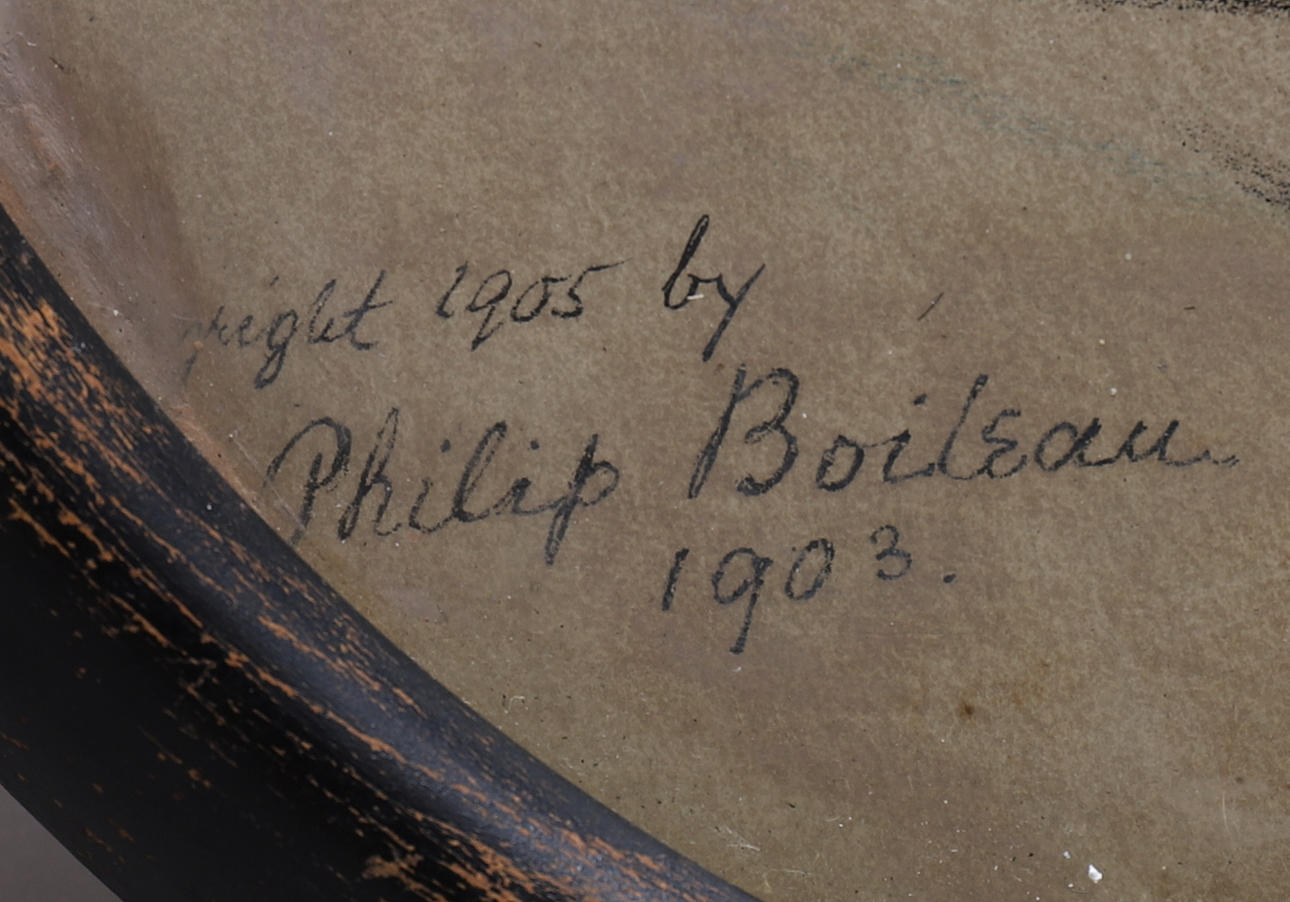 yright 1905 by
Philip Boileau.
1903.